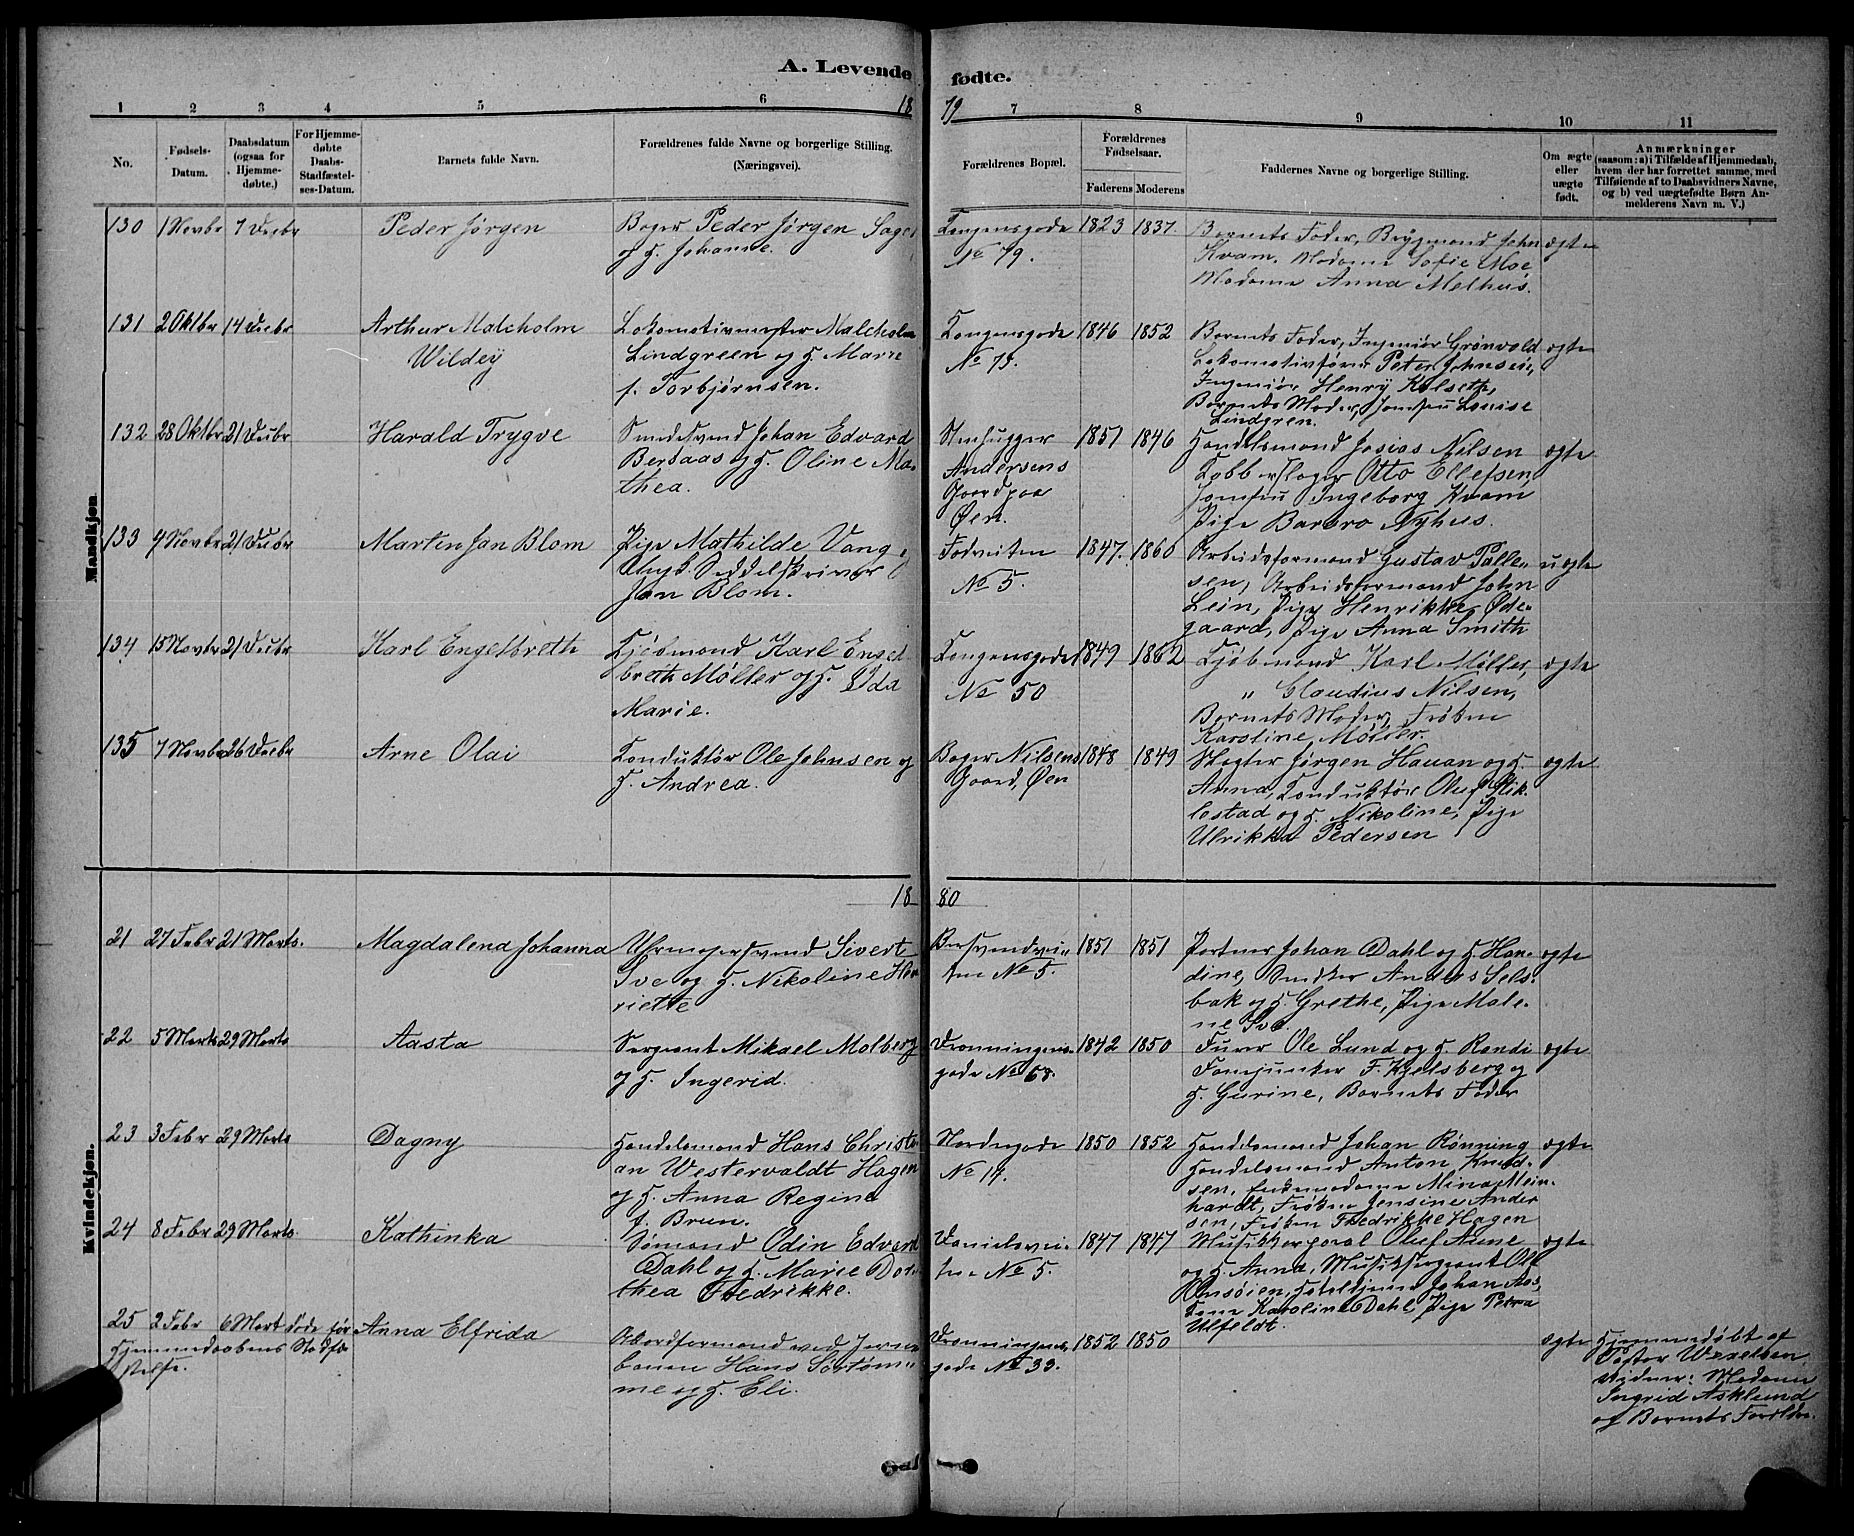 A. Levende fødte.
18 79
1 2 3 4 5 6 7 8 9 10 11
No.
Fødsels-
Datum.
Daabsdatum
(ogsaa for
Hjemme-
døbte.)
For Hjemme-
døbte
Daabs-
Stadfæstel-
ses-Datum.
Barnets fulde Navn.
Forældrenes fulde Navne og borgerlige Stilling.
(Næringsvei).
Forældrenes Bopæl.
Forældrenes
Fødselsaar.
Faderens Moderens
Faddernes Navne og borgerlige Stilling.
Om ægte
eller
uægte
født.
Anmærkninger
(saasom: a) i Tilfælde af Hjemmedaab,
hvem der har forrettet samme, med
Tilføiende af to Daabsvidners Navne,
og b) ved uægtefødte Børn An-
melderens Navn m. V.)
Mandkjøn
130 1 Novbr 7 Decbr
Peder Jørgen
Bager Peder Jørgen
og H. Johanne.
Kongensgade
No 79.
1823 1837
Barnets Fader, Brygmand John
Kvam, Madame Sofie Moe
Madame Anna Melhus.
ægte
131 2 Oktbr 14 Decbr
Arthur Malcholm
Wildey
Lokomotivmester Malcholm
Lindgreen og H. Marie
f. Torbjørnsen.
Kongensgade
No 75.
1846 1852
Barnets Fader, Ingeniør Grønvold
Lokomotivfører Peter Johnsen,
Ingeniør Henry Kelseth,
Barnets Moder, Jomfru Louise
Lindgren.
ægte
132 28 Oktbr 21 Decbr
Harald Trygve
Smedesvend Johan Edvard
Bersaas og H. Oline Ma-
thea.
Stenhugger
Andersens
Gaard paa
Øen.
1851 1846
Handelsmand Josias Nilsen
Kobberslager Otto Ellefsen,
Jomfru Ingeborg Kvam
Pige Barbro Nyhus.
ægte
133 4 Novbr 21 Decbr
Martin Jan Blom
Pige Mathilde Vang,
Ungk. Seddelskriver
Jan Blom.
Fodveiten
No 5.
1847. 1860
Arbeidsformand Gustav Palle-
sen, Arbeidsformand John
Lein, Pige Henrikke Øde-
gaard, Pige Anna Smith
uægte
134 15 Novbr 21 Decbr
Karl Engelbreth
Kjøbmand Karl Engel
breth Møller og H. Ida
Marie.
Kongensgade
No 50
1849 1862
Kjøbmand Karl Møller,
" Claudius Nilsen,
Barnets Moder, Frøken
Karoline Møller.
ægte
135 7 Novbr 26 Decbr
Arne Olai
Konduktør Ole Johnsen og
H. Andrea.
Bager Nilsens
Gaard, Øen
1848 1849
Slagter Jørgen Hauan og H.
Anna, Konduktør Oluf Stik-
lestad og H. Nikoline, Pige
Ulrikka Pedersen
ægte
18 80
Kvindekjøn.
21 27 Febr 21 Marts.
Magdalena Johanna
Uhrmagersvend Sivert
Sve og H. Nikoline Hen
riette
No 5.
1851 1851
Portner Johan Dahl og H. Han-
dine, Snedker Andras Sels-
bak og H. Grethe, Pige Male-
ne Sve.
ægte
22 5 Marts 29 Marts
Aasta
Sergeant Mikael Molberg
og H. Ingerid.
Dronningens-
gade No 68.
1842 1850
Furer Ole Lund og H. Randi
Fanejunker F. Kjelsberg og
H. Gurine, Barnets Fader
ægte
23 3 Febr 29 Marts
Dagny
Handelsmand Hans Christi
an Westervaldt Hagen
og H. Anna Regine
f. Brun.
Nordregade
No 19.
1850 1852
Handelsmand Johan Rønning
Handelsmand Anton Knud-
sen, Enkemadame Mina Mein-
hardt, Frøken Jensine Ander
sen, Frøken Fredrikke Hagen
ægte
24 8 Febr 29 Marts.
Kathinka
Sømand Odin Edvard
Dahl og H. Marie Doro
thea Fredrikke.
Danielsvei-
ten No 5.
1847 1847
Musikkorporal Oluf Arne
og H. Anna, Musiksergeant Ole
Johan Aas,
Karoline Dahl, Pige Petra
Ulfeldt.
ægte
25 2 Febr 6 Mart døde før
Hjemmedaabens Stadfæ
stelse.
Anna Elfrida
Akkordformand ved Jern-
banen Hans Sortøm-
me og H. Eli.
Dronningens
gade No 33.
1852 1850
ægte
Hjemmedøbt af
Pastor Wexelsen
Vidner: Madame
Ingrid Asklund
og Barnets Forældre.